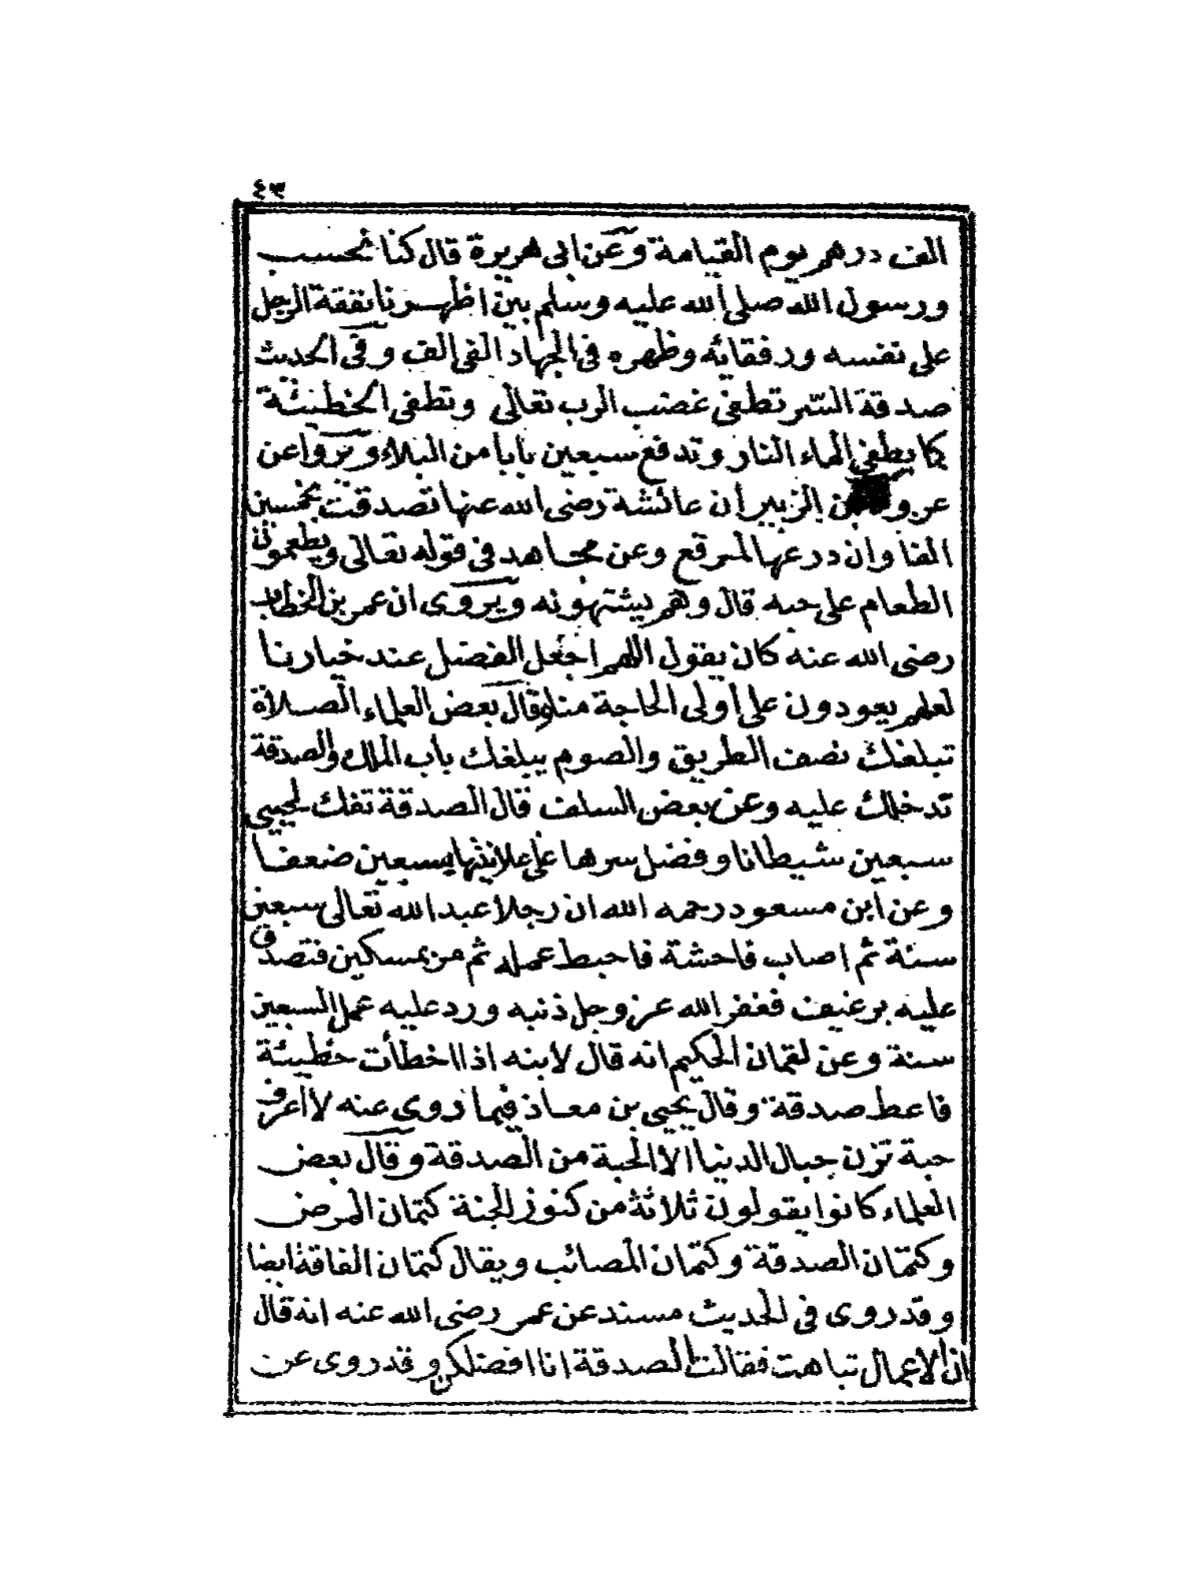 ٤٣
الف درهم يوم القيامة وعن ابى هريرة قال كنا نحسب
ورسول الله صلى الله عليه وسلم بين اظهرنا نفقة الرجل
على نفسه ورفقائه وظهره فى الجهاد الفى الف وفى الحديث
صدقة السّر تطفئ غضب الرب تعالى وتطفى الخطيئة
كما يطفئ الماء النار وتدفع سبعين بابا من البلاء ويروا عن
عروة بن الزبير أن عائشة رضى الله عنها تصدقت بخمسين
الفا وان درعها لمرقع وعن مجاهد فى قوله تعالى ويطعمون
الطعام على حبه قال وهم يشتهونه ويروى ان عمر بن الخطاب
رضى الله عنه كان يقول اللهم اجعل الفضل عند خيارنا
لعلهم يعودون على أولى الحاجة منا وقال بعض العلماء الصلاة
تبلغك نصف الطريق والصوم يبلغك باب الملك والصدقة
تدخلك عليه وعن بعض السلف قال الصدقة تفك لحيى
سبعين شيطانا وفضل سرها على علانيتها بسبعين ضعفا
وعن ابن مسعود رحمه الله ان رجلا عبد الله تعالى سبعين
سنة ثم اصاب فاحشة فاحبط عمله ثم مر بمسكين فتصدق
عليه برغيف فغفر الله عز وجل ذنبه ورد عليه عمل السبعين
سنة وعن لقمان الحكيم انه قال لابنه اذا اخطأت خطيئة
فاعط صدقة وقال يحيى بن معاذ فيما روى عنه لا أعرف
حبة تزن جبال الدنيا الا الحبة من الصدقة وقال بعض
العلماء كانوا يقولون ثلاثة من كنوز الجنة كتمان المرض
وكتمان الصدقة وكتمان المصائب ويقال كتمان الفاقة ايضا
وقد روى فى الحديث مسند عن عمر رضى الله عنه انه قال
ان الاعمال تباهت فقالت الصدقة انا افضلكن وقد روى عن